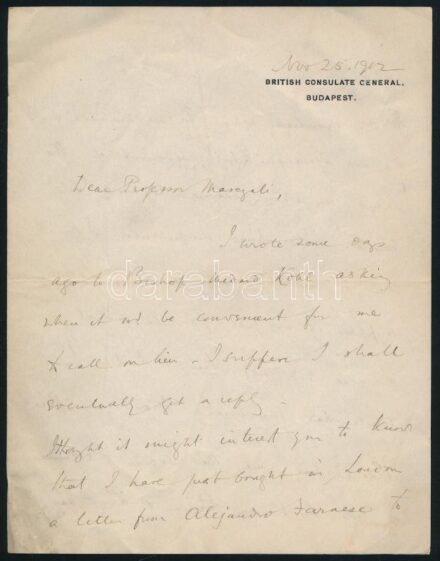 Nov 25. 1902
BRITISH CONSULATE GENERAL,
BUDAPEST.
Dear Professor Marczali,
I wrote some days
ago to Bishop Medard Kohl asking
when it wd be convenient for me
to call on him - I suppose I shall
eventually get a reply -
I thought it might interest you to know
that I have just bought in London
a letter from Alejandro Farnese to
darabanth